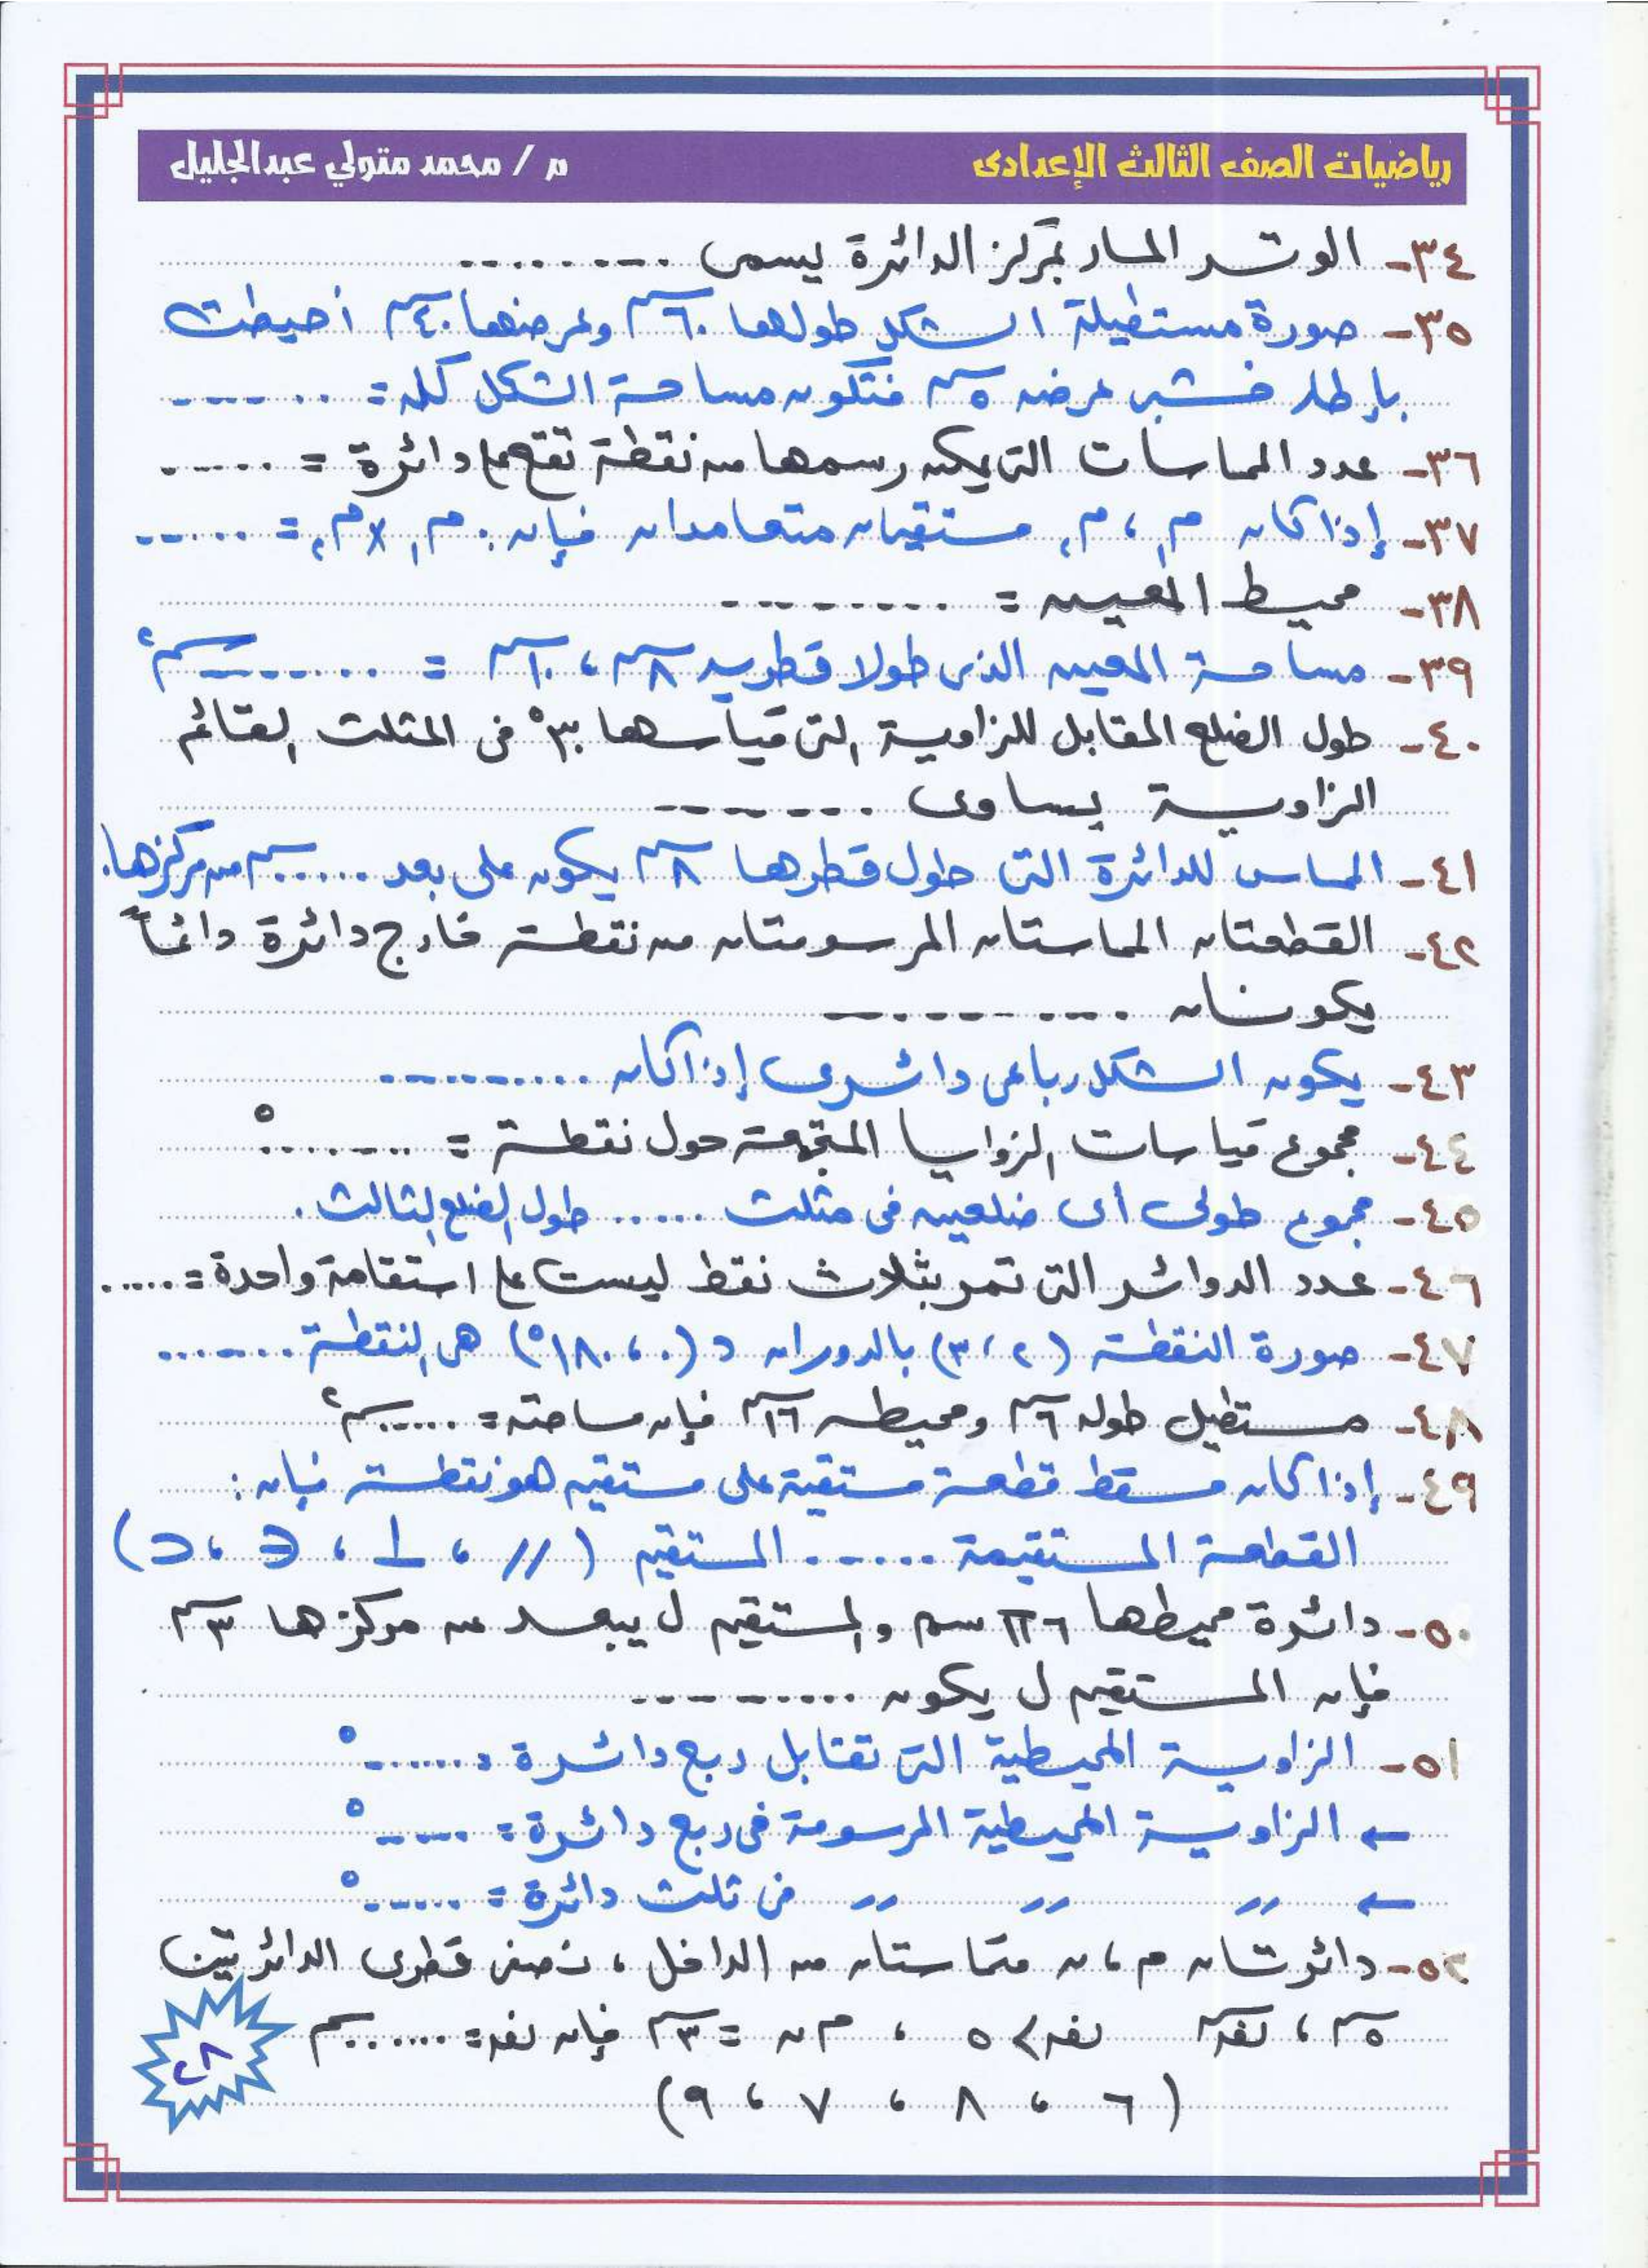 رياضيات الصف الثالث الإعدادى
م / محمد متولي عبدالجليل
٣٤- الوتر المار بمركز الدائرة يسمى ........
٣٥- صورة مستطيلة الشكل طولها ٦٠سم وعرضها ٤٠سم أحيطت
بإطار خشبى عرضه ٥سم فتكون مساحة الشكل كله = ......
٣٦- عدد المماسات التى يمكن رسمها من نقطة تقع على دائرة = ......
٣٧- إذا كان م١ ، م٢ مستقيمان متعامدان فإن م١ × م٢ = ......
٣٨- محيط المعين = ........
٣٩- مساحة المعين الذى طولا قطريه ٨سم ، ١٠سم = ........ سم٢
٤٠- طول الضلع المقابل للزاوية التى قياسها ٣٠° فى المثلث القائم
الزاوية يساوى ........
٤١- المماس للدائرة التى طول قطرها ٨سم يكون على بعد ...... سم من مركزها.
٤٢- القطعتان المماستان المرسومتان من نقطة خارج دائرة دائماً
يكونان ..........
٤٣- يكون الشكل رباعى دائرى إذا كان ..........
٤٤- مجموع قياسات الزوايا المتجمعة حول نقطة = ........°
٤٥- مجموع طولى أى ضلعين فى مثلث ..... طول الضلع الثالث .
٤٦- عدد الدوائر التى تمر بثلاث نقط ليست على استقامة واحدة = .....
٤٧- صورة النقطة (٢ ، ٣) بالدوران د (٠ ، ١٨٠°) هى النقطة .......
٤٨- مستطيل طوله ٦سم ومحيطه ١٦سم فإن مساحته = ...... سم٢
٤٩- إذا كان مسقط قطعة مستقيمة على مستقيم هو نقطة فإن :
القطعة المستقيمة ...... المستقيم ( // ، ⊥ ، ∋ ، ⊃ )
٥٠- دائرة محيطها ٦π سم والمستقيم ل يبعد عن مركزها ٣سم
فإن المستقيم ل يكون .........
٥١- الزاوية المحيطية التى تقابل ربع دائرة = ......°
← الزاوية المحيطية المرسومة فى ربع دائرة = ......°
← // // // فى ثلث دائرة = ......°
٥٢- دائرتان م ، ن متماستان من الداخل ، نصفى قطرى الدائرتين
٥سم ، نق سم نق > ٥ ، م ن = ٣سم فإن نق = ...... سم
( ٦ ، ٨ ، ٧ ، ٩ )
٢٨